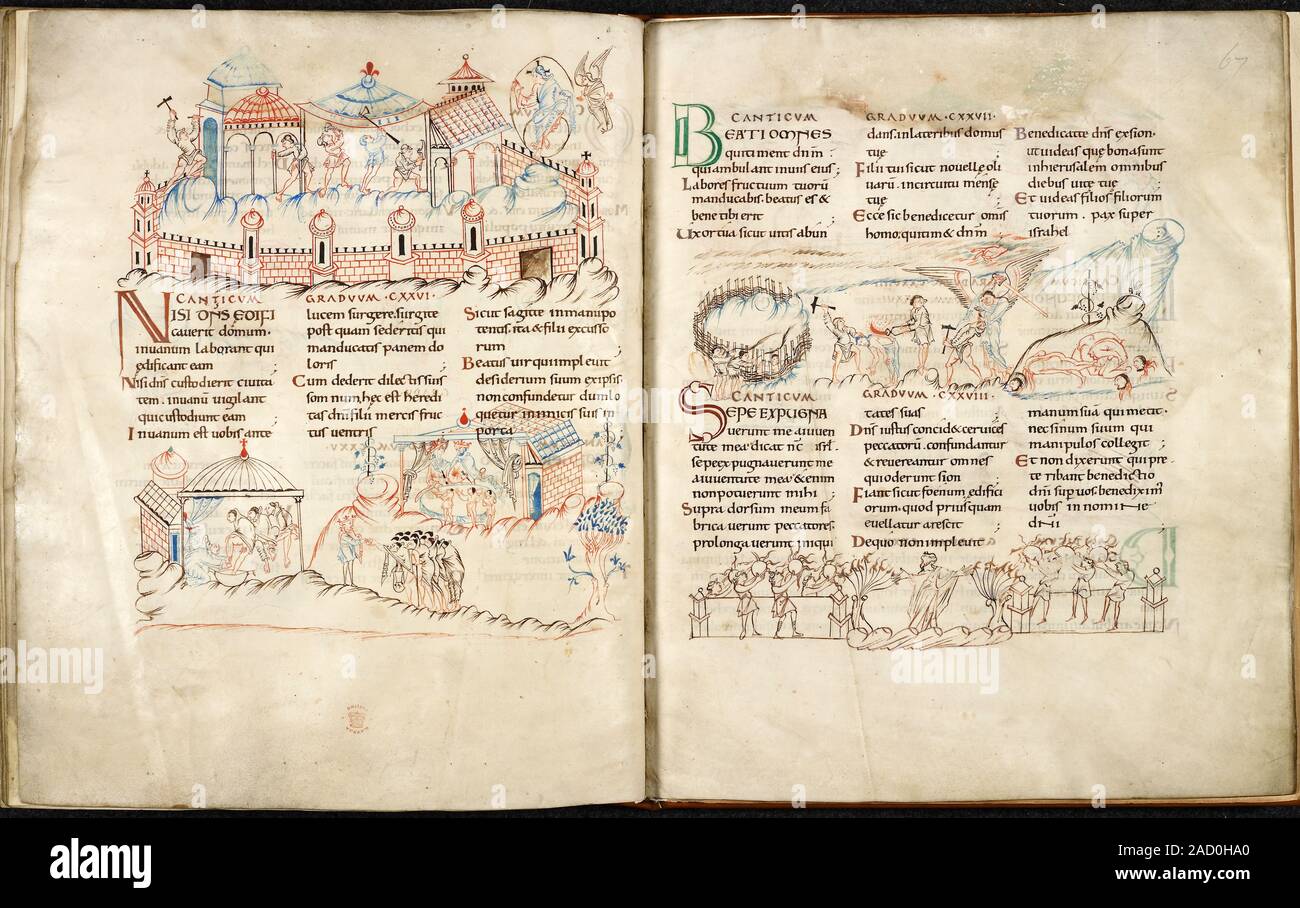 CANTICUM
NISI DNS EDIFI
cauerit domum.
inuanum laborant qui
edificant eam
Nisi dns custodierit ciuita
tem. inuanu uigilant
qui custodiunt eam
Inuanum est uobis ante
GRADUUM·CXXVI·
lucem surgere. surgite
post quam sederitis qui
manducatis panem do
loris
Cum dederit dilectis suis
somnum, hec est heredi
tas dni filii mercis fruc
tus uentris
Sicut sagitte inmanu po
tentis. ita & filii excusso
rum
Beatus uir qui impleuit
desiderium suum ex ipsis.
non confundetur dum lo
quetur inimicis suis in
porta
67
CANTICUM
BEATI OMNES
qui timent dnm
qui ambulant in uiis eius
Labores fructuum tuoru
manducabis. beatus es &
bene tibi erit
Uxor tua sicut uitis abun
GRADUUM·CXXVII·
dans. in lateribus domus
tue
Filii tui sicut nouelle oli
uaru. incircuitu mense
tue
Ecce sic benedicetur omis
homo. qui tim& dnm
Benedicat te dns exsion.
ut uideas que bona sunt
inhierusalem omnibus
diebus uite tue
Et uideas filios filiorum
tuorum. pax super
israhel
CANTICUM
SEPE EXPUGNA
uerunt me a iuuen
tute mea. dicat nc isrl.
sepe expugnauerunt me
a iuuentute mea. & enim
non potuerunt mihi
Supra dorsum meum fa
bricauerunt peccatores.
prolongauerunt iniqui
GRADUUM·CXXVIII·
tates suas
Dns iustus concid& ceruices
peccatoru. confundantur
& reuereantur omnes
qui oderunt sion
Fiant sicut foenum edifici
orum. quod priusquam
euellatur arescit
De quo non impleuit
manum suam qui metit.
nec sinum suum qui
manipulos colleg&
Et non dixerunt qui pre
teribant benedictio
dni sup uos. benediximus
uobis in nomine
dni
alamy
Image ID: 2AD0HA0
www.alamy.com